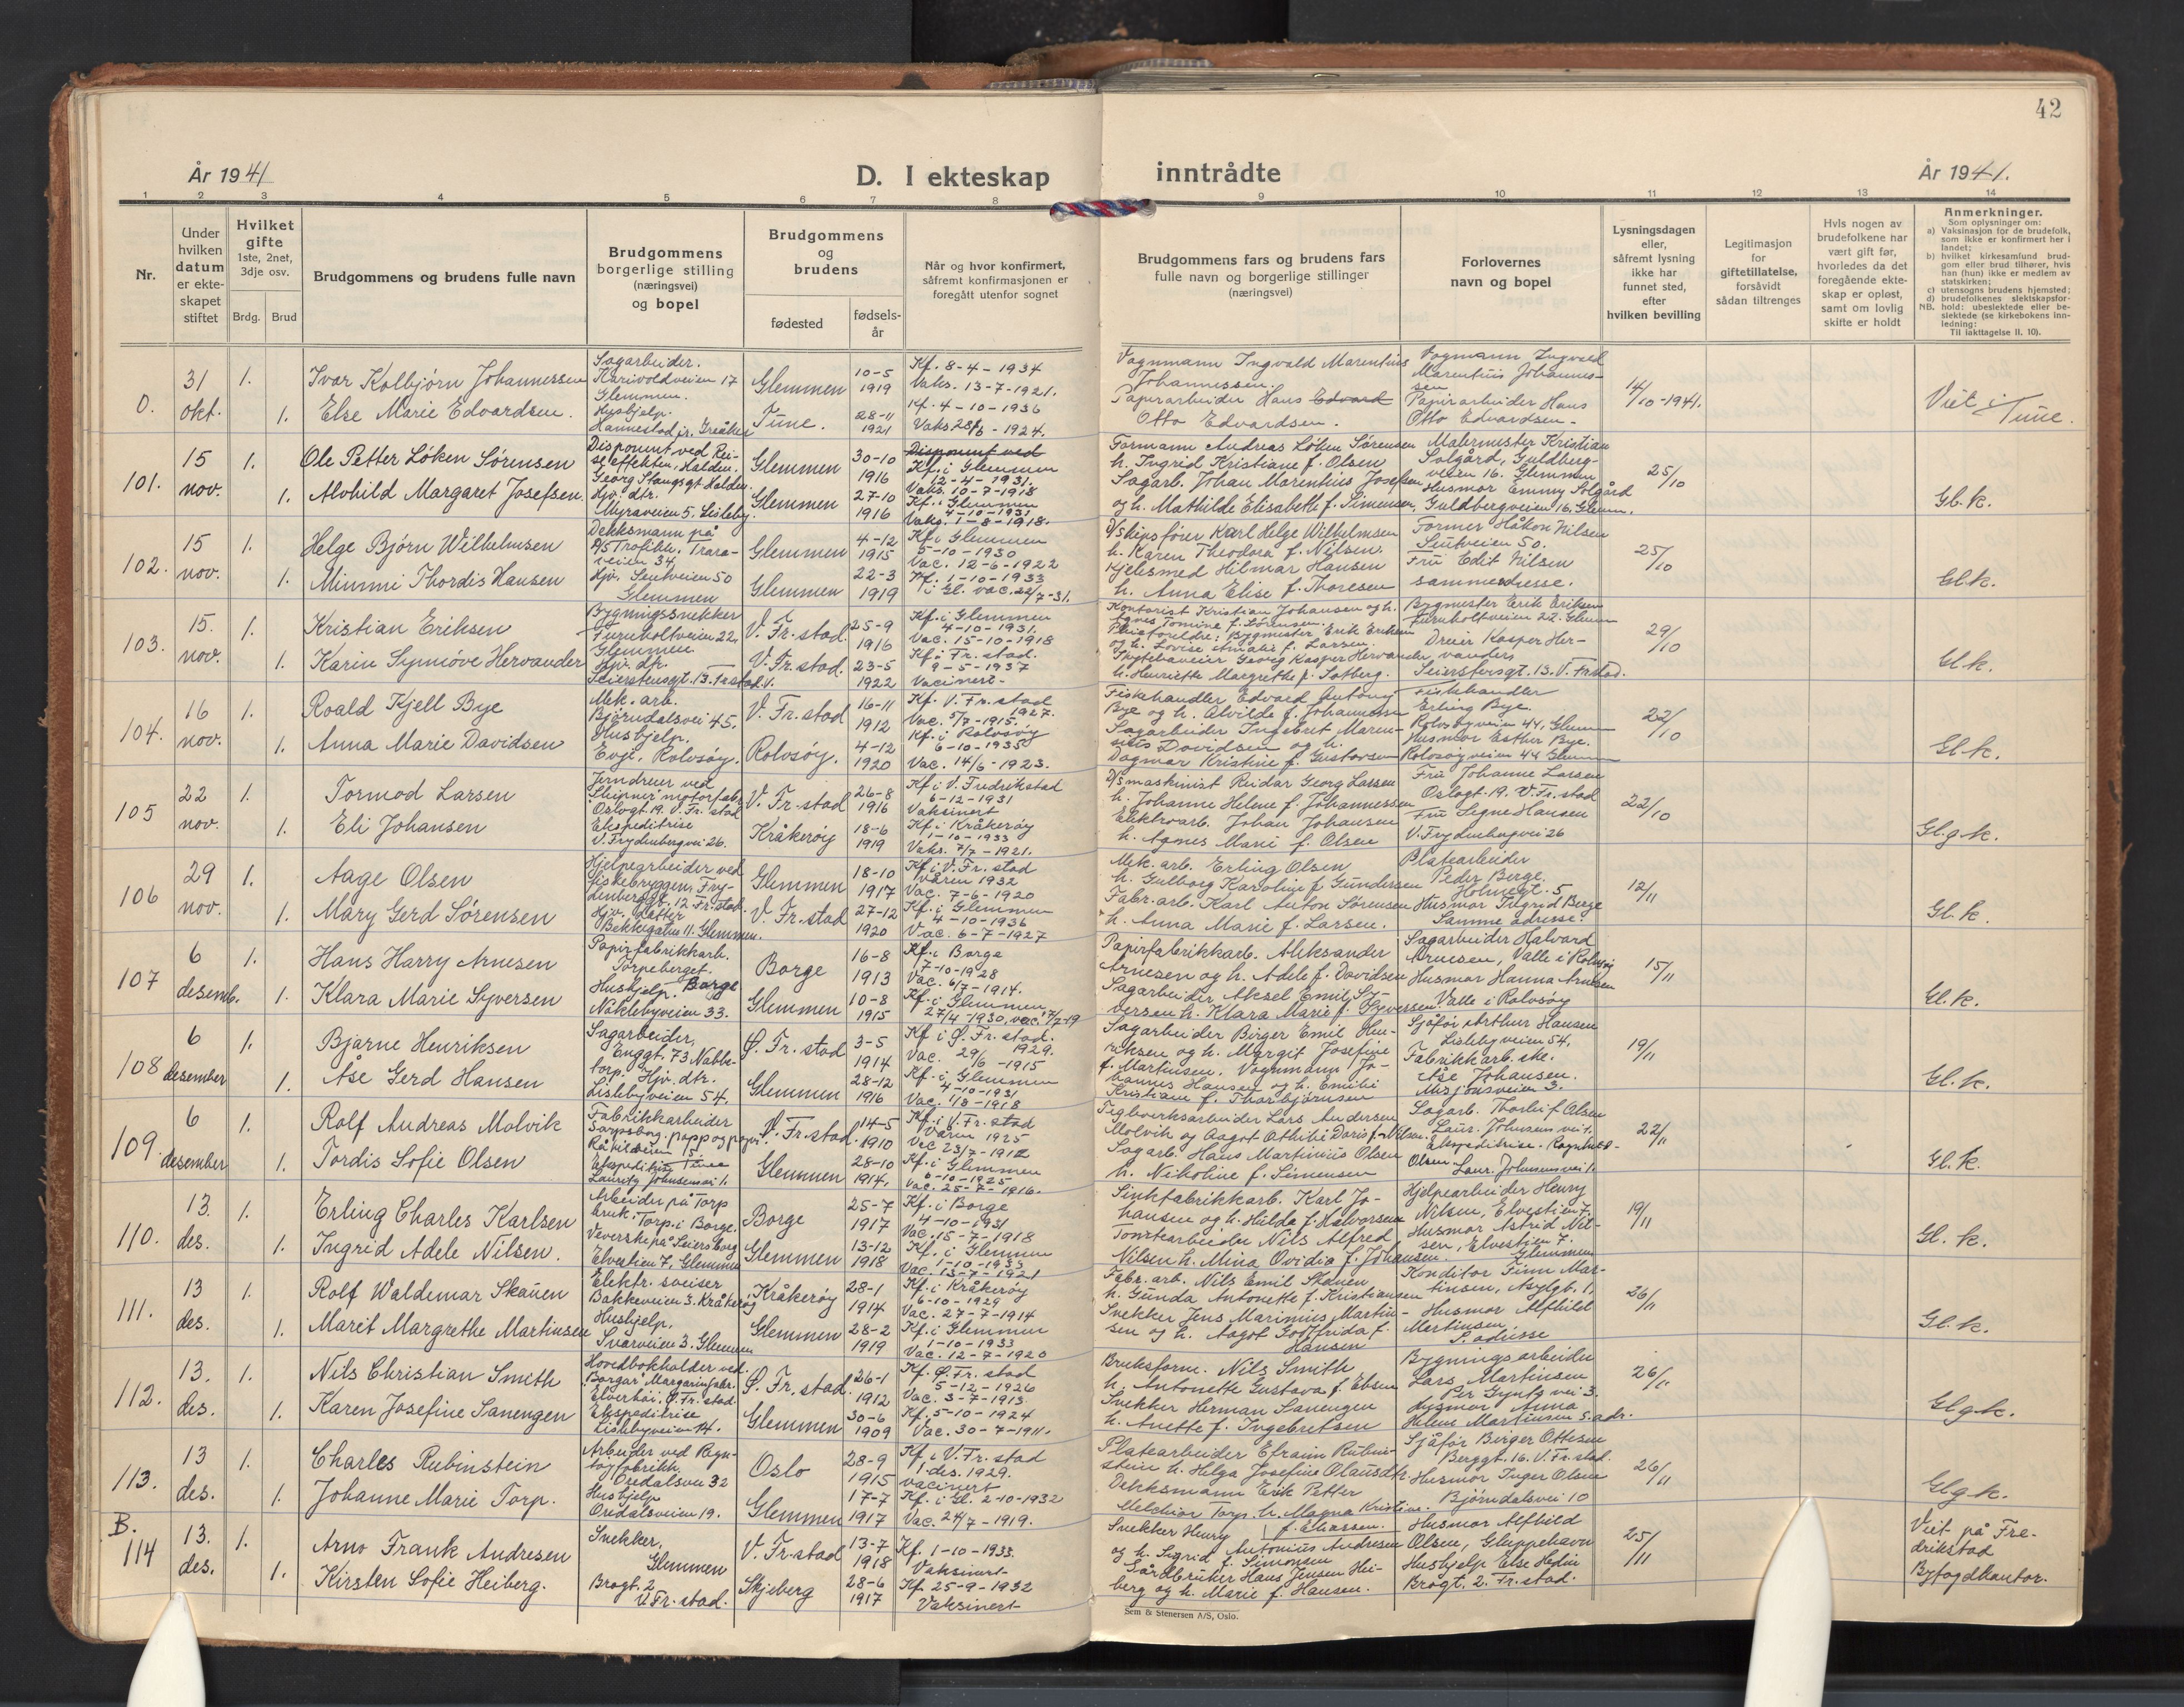 42
År 1941
D. I ekteskap inntrådte
År 1941.
1 2 3 4 5 6 7 8 9 10 11 12 13 14
Nr.
Under hvilken datum er ekteskapet stiftet
Hvilket gifte 1ste, 2net, 3dje osv.
Brdg. Brud
Brudgommens og brudens fulle navn
Brudgommens borgerlige stilling (næringsvei) og bopel
Brudgommens og brudens
fødested
fødselsår
Når og hvor konfirmert, såfremt konfirmasjonen er foregått utenfor sognet
Brudgommens fars og brudens fars fulle navn og borgerlige stillinger (næringsvei)
Forlovernes navn og bopel
Lysningsdagen eller, såfremt lysning ikke har funnet sted, efter hvilken bevilling
Legitimasjon for giftetillatelse, forsåvidt sådan tiltrenges
Hvis nogen av brudefolkene har vært gift før, hvorledes da det foregående ekteskap er opløst, samt om lovlig skifte er holdt
Anmerkninger.
Som oplysninger om:
a) Vaksinasjon for de brudefolk, som ikke er konfirmert her i landet;
b) hvilket kirkesamfund brudgom eller brud tilhører, hvis han (hun) ikke er medlem av statskirken;
c) utensogns brudens hjemsted;
d) brudefolkenes slektskapsforhold: ubeslektede eller beslektede (se kirkebokens innledning:
NB. Til iakttagelse II. 10).
0. 31 okt. 1. Ivar Kolbjørn Johannessen
Sagarbeider. Karivoldveien 17 Glemmen.
Glemmen 10-5 1919
Kf. 8-4-1934 Vaks. 13-7-1921.
Vognmann Ingvald Marentius Johannessen.
Vognmann Ingvald Marentius Johannessen
14/10-1941.
Viet i Tune.
1. Else Marie Edvardsen.
Hushjelp. Hannestad pr. Greåker
Tune. 28-11 1921
Kf. 4-10-1936
Papirarbeider Hans Edvard Otto Edvardsen.
Papirarbeider Hans Otto Edvardsen.
101. 15 nov. 1. Ole Petter Löken Sörensen
Disponent ved Reiseeffekter, Halden. Georg Stangsgt Halden.
Glemmen 30-10 1916
Disponent ved
Kf. i Glemmen 12-4-1931. Vaks. 10-7-1918
Formann Andreas Löken Sörensen h. Ingrid Kristiane f. Olsen
Malermester Kristian Solgård, Guldbergveien 16. Glemmen
25/10
1. Alvhild Margaret Josefsen.
Hjv. dtr. Myraveien 5. Lisleby.
Glemmen 27-10 1916
Kf. i Glemmen 4-10-1931 Vaks. 1-8-1918.
Sagarb. Johan Marentius Josefsen og h. Mathilde Elisabeth f. Simensen,
Husmor Emmy Solgård Guldbergveien 16, Glemm.
Gl. k.
102. 15 nov. 1. Helge Björn Wilhelmsen
Dekksmann på
Glemmen 4-12 1915
Kf. i Glemmen 5-10-1930 Vac. 12-6-1922
D/Skipsförer Karl Helge Wilhelmsen h. Karen Theodora f. Nilsen.
Former Håkon Nilsen Leutveien 50.
25/10
1. Mimmi Thordis Hansen
Hjv. Leutveien 50 Glemmen
Glemmen 22-3 1919
Kf. 1-10-1933 i Gl. vac. 22/7-31.
Kjelesmed Hilmar Hansen h. Anna Elise f. Thoresen
Fru Edit Nilsen samme adresse.
Gl. k.
103. 15. nov. 1. Kristian Eriksen
Bygningssnekker Furuholtveien 22. Glemmen.
V. Fr.stad. 25-9 1916
Kf. i Glemmen 4-10-1931. Vac. 15-10-1918
Kontorist Kristian Johansen og h. Agnes Tomine f. Sörensen. Pleieforeldre: Bygmester Erik Eriksen og h. Lovise Amalie f. Larsen
Bygmester Erik Eriksen Furuholtveien 22. Glemm
29/10
1. Karin Synnöve Hervander
Hjv. dtr. Seierstensgt. 13. Fr.stad. V.
V. Fr.stad. 23-5 1922
Kf. i Fr. stad. 9-5-1937 Vacinert.
Georg Kasper Hervander h. Henriette Margrethe f. Solberg.
Dreier Kasper Hervander, Seierstensgt. 13. V. Fr.stad.
Gl. k.
104. 16 nov. 1. Roald Kjell Bye
Mek. arb. Bjørndalsvei 45.
V. Fr. stad 16-11 1912
Kf. V. Fr. stad 1927. Vac. 5/7-1915.
Fiskehandler Edvard Antony Bye og h. Alvilde f. Johannessen
Fiskehandler Erling Bye. Rolvsöyveien 44, Glemm
22/10
1. Anna Marie Davidsen
Hushjelp. Evje, Rolvsöy.
Rolvsöy. 4-12 1920
Kf. i Rolvsöy 6-10-1935 Vac. 14/6-1923.
Sagarbeider Ingebret Marensius Davidsen og h. Dagmar Kristine f. Gustavsen
Husmor Esther Bye. Rolvsöyveien 44 Glemm
Gl. k.
105 22 nov. 1. Tormod Larsen
Jerndreier ved "Sleipner" motorfabr. Oslogt 19. V. Fr. stad
V. Fr. stad 26-8 1916
Kf. i V. Fredrikstad 6-12-1931 Vaksinert
D/Smaskinist Reidar Georg Larsen h. Johanne Helene f. Johannessen
Fru Johanne Larsen Oslogt. 19. V. Fr. stad
22/10
1. Eli Johansen
Ekspeditrise V. Frydenbergvei 26.
Kråkeröy 18-6 1919
Kf. i Kråkeröy 1-10-1933 Vaks. 7/7-1921.
Elektroarb. Johan Johansen h. Agnes Marie f. Olsen
Fru Signe Hansen V. Frydenbergvei 26
Gl. g. k.
106 29 nov. 1. Aage Olsen
Hjelpearbeider ved fiskebryggen, Frydenberggt. 12 Fr.stad.
Glemmen 18-10 1917
Kf. i V. Fr. stad våren 1932 Vac. 7-6-1920
Mek. arb. Erling Olsen h. Gulborg Karoline f. Gundersen
Platearbeider Peder Berge. Holmegt. 5
12/11
1. Mary Gerd Sörensen
Hjv. datter Bekkegaten 11. Glemmen.
V. Fr. stad 27-12 1920
Kf. i Glemmen 4-10-1936 Vac. 6-7-1927
Fabr. arb. Karl Anton Sörensen h. Anna Marie f. Larsen.
Husmor Ingrid Berge Samme adresse.
Gl. k.
107 6 desemb. 1. Hans Harry Arnesen
Papirfabrikkarb. Torpeberget. Borge
Borge 16-8 1913
Kf. i Borge 7-10-1928 Vac. 6/7-1914.
Papirfabrikkarb. Aleksander Arnesen og h. Adele f. Davidsen
Sagarbeider Halvard Arnesen, Valle i Rolvsöy
15/11
1. Klara Marie Syversen
Hushjelp. Nöklebyveien 33.
Glemmen 10-8 1915
Kf. i Glemmen, 27/4-1930, vac. 7/7-19
Sagarbeider Aksel Emil Syversen h. Klara Marie f. Syversen.
Husmor Hanna Arnesen Valle i Rolvsöy
Gl. k.
108 6 desember 1. Bjarne Henriksen
Sagarbeider, Enggt. 73 Nabbetorp.
Ö. Fr. stad 3-5 1914
Kf. i Ö. Fr. stad. 1929. Vac. 29/6-1915
Sagarbeider Birger Emil Henriksen og h. Margit Josefine f. Martinsen.
Sjåför Arthur Hansen Lislebyveien 54.
19/11
1. Åse Gerd Hansen
Hjv. dtr. Lislebyveien 54.
Glemmen 28-12 1916
Kf. i Glemmen 4-10-1931 Vac. 1/8-1918
Vognmann Johannes Hansen og h. Emilie Kristiane f. Thorbjörnsen
Fabrikkarb.ske. Åse Johansen. Misjonsveien 3.
Gl. k.
109. 6 desember 1. Rolf Andreas Molvik
Fabrikkarbeider Sarpsborg papp og papir.
V. Fr. stad. 14-5 1910
Kf. i V. Fr. stad våren 1925
Teglverksarbeider Lars Andersen Molvik og Aagot Othilie Doris f. Nilsen.
Sagarb. Thorleif Olsen Laur. Johnsens vei 1.
22/11
1. Tordis Sofie Olsen
Ekspeditrise Lauritz Johnsensvei 1.
Glemmen 28-10 1914.
Kf. i Glemmen 6-10-1925 Vac. 25-7-1916.
Sagarb. Hans Martinius Olsen h. Nikoline f. Simensen
Ekspeditrise Ragnhild Olsen Laur. Johnsens vei 1.
Gl. k.
110. 13. des. 1. Erling Charles Karlsen
Arbeider på Torp bruk. Torp i Borge.
Borge 25-7 1917
Kf. i Borge 4-10-1931 Vac. 15-7-1918
Sinkfabrikkarb. Karl Johansen og h. Hilda f. Halvorsen
Hjelpearbeider Henry Nilsen, Elvestien 7.
19/11
1. Ingrid Adele Nilsen.
Veverske på Seiersborg Elvestien 7, Glemmen
Glemmen 13-12 1918
Kf. i Glemmen 1-10-1933 Vac. 13-7-1921
Tomtearbeider Nils Alfred Nilsen h. Mina Ovidia f. Johansen.
Husmor Astrid Nilsen, Elvestien 7. Glemmen
Gl. k.
111. 13 des. 1. Rolf Waldemar Skauen
Elektr. sveiser Bakkeveien 3. Kråkeröy
Kråkeröy 28-1 1914
Kf. i Kråkeröy 6-10-1929 Vac. 27-7-1914
Fabr. arb. Nils Emil Skauen h. Gunda Antonette f. Kristiansen
Konditor Finn Martinsen, Asylgt. 1.
26/11
1. Marit Margrethe Martinsen
Hushjelp, Svarveien 3. Glemmen
Glemmen 28-2 1919
Kf. i Glemmen 1-10-1933 Vac. 12-7-1920
Snekker Jens Marinius Martinsen og h. Aagot Gottfrida f. Hansen
Husmor Alfhild Martinsen, S. adresse
Gl. k.
112. 13. des. 1. Nils Christian Smith
Hovedbokholder ved "Borgar" Margarinfabr. Elverhöi, Ö. Fr. stad.
Ö. Fr. stad. 26-1 1912
Kf. Ö. Fr. stad 5-12-1926 Vac. 3-7-1913.
Bruksform. Nils Smith h. Antonette Gustava f. Ebsen
Bygningsarbeider Lars Martinsen Per Gyntg vei 3.
26/11
1. Karen Josefine Sanengen
Ekspeditrise Lislebyveien 74.
Glemmen 30-6 1909
Kf. 5-10-1924 Vac. 30-7-1911.
Snekker Herman Sanengen h. Anette f. Ingebretsen
Husmor Anna Helene Martinsen s. adr.
Gl. g. k.
113. 13 des. 1. Charles Rubinstein
Arbeider ved Regntöyfabrikk, Oredalsvei 32
Oslo 28-9 1915
Kf. i V. Fr. stad 1. des. 1929. vacinert
Platearbeider Efraim Rubinstein h. Helga Josefine Olausdtr.
Sjåför Birger Ottesen Berggt. 16. V. Fr. stad.
26/11
1. Johanne Marie Torp.
Hushjelp Oredalsveien 19.
Glemmen 17-7 1917
Kf. i Gl. 2-10-1932 Vac. 24/7-1919.
Dekksmann Erik Petter Melchior Torp. h. Magna Kristine f. Eliassen.
Husmor Inger Olsen Björndalsvei 10
Gl. g. k.
B. 114 13. des. 1. Arno Frank Andresen
Snekker, Glemmen
V. Fr. stad 13-7 1918
Kf. 1-10-1933. Vaksinert
Snekker Henry Antonius Andresen og h. Sigrid f. Simonsen
Husmor Alfhild Olsen, Gluppehavn
25/11
Viet på Fredrikstad Byfogdkontor.
1. Kirsten Sofie Heiberg.
Brogt. 2 V. Fr. stad.
Skjeberg 28-6 1917
Kf. 25-9-1932 Vaksinert
Gårdbruker Hans Jensen Heiberg og h. Marie f. Hansen.
Hushjelp Else Hedin Brogt. 2. Fr. stad.
Sem & Stenersen A/S, Oslo.